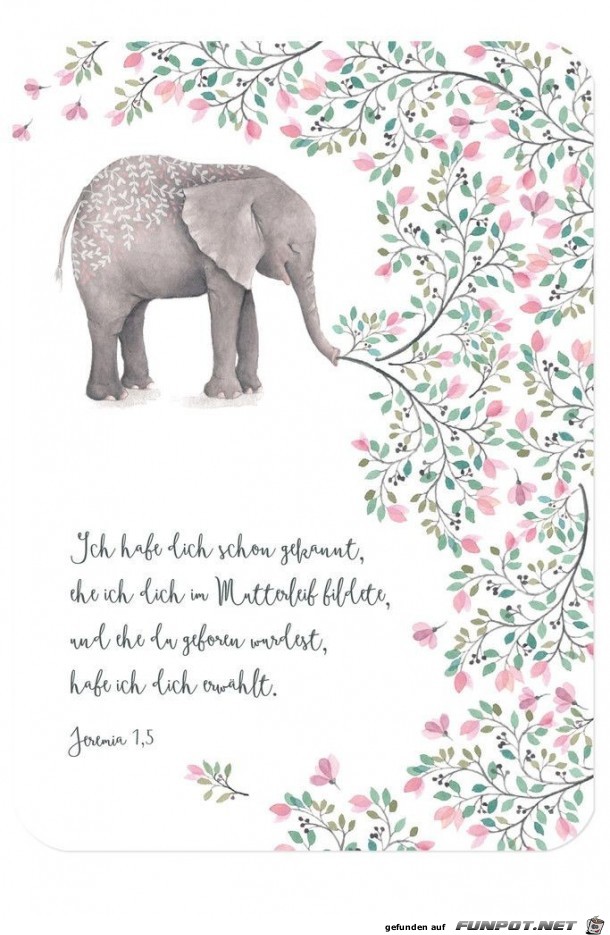 Ich habe dich schon gekannt,
ehe ich dich im Mutterleib bildete,
und ehe du geboren wurdest,
habe ich dich erwählt.
Jeremia 1,5
gefunden auf FUNPOT.NET